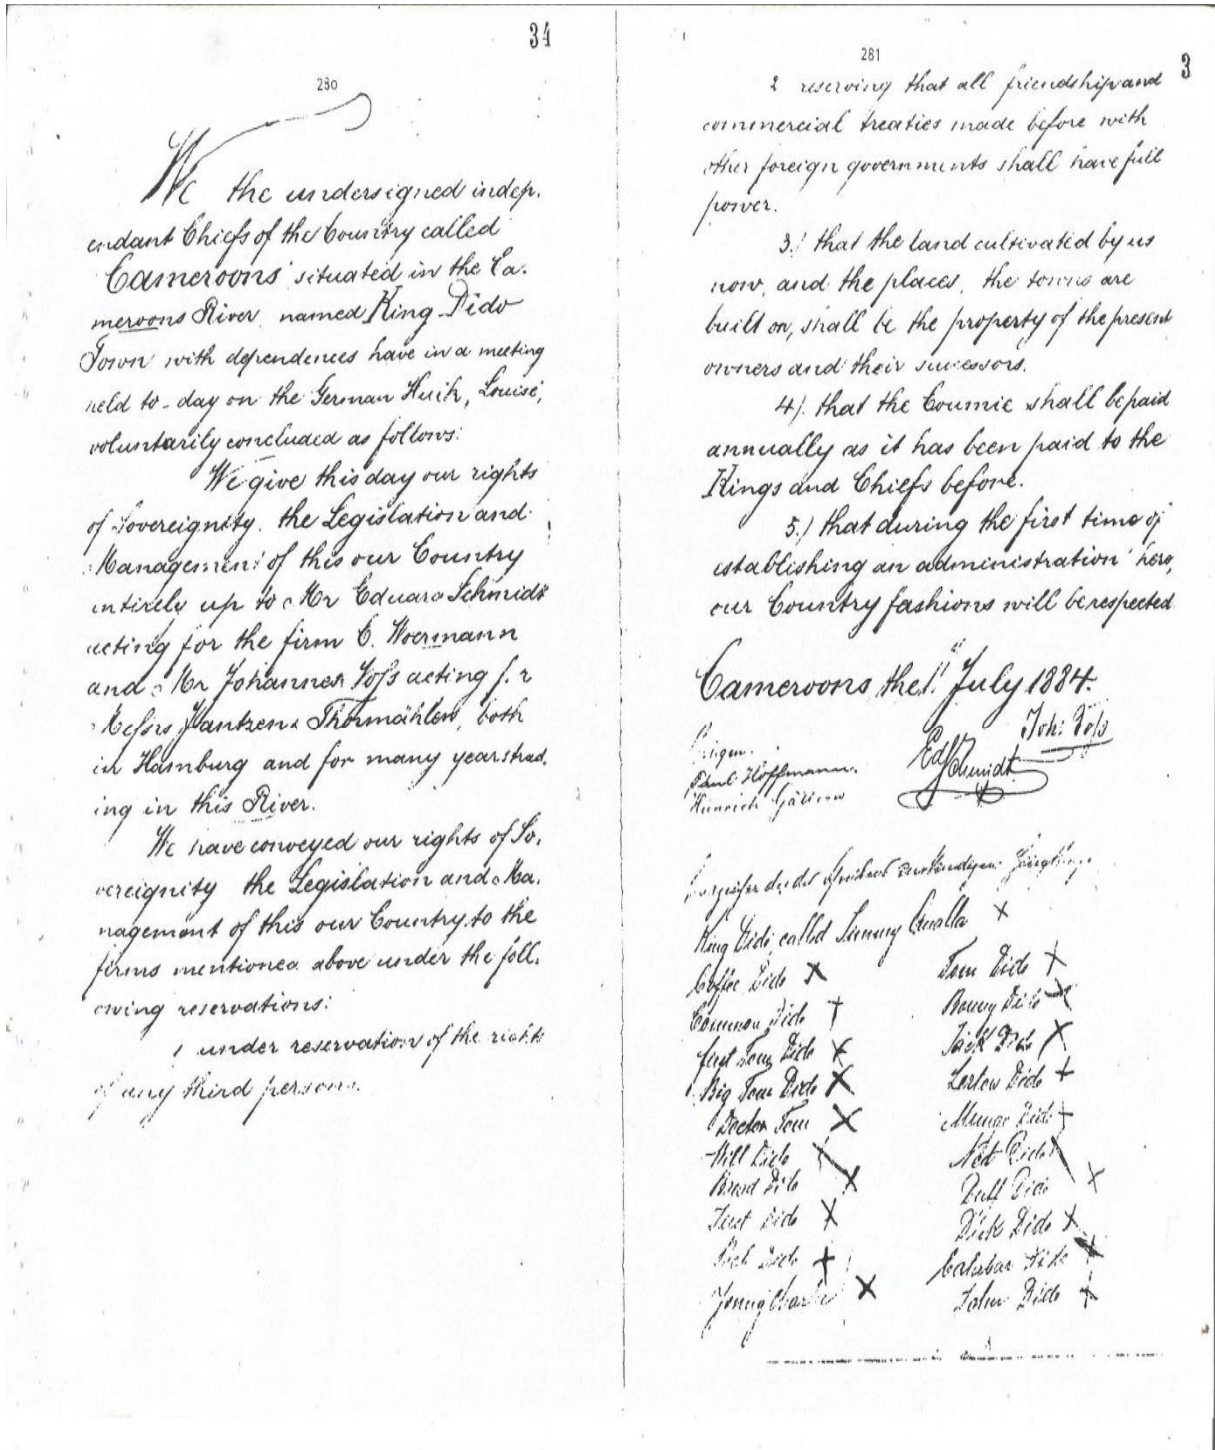 34
230
We the undersigned indep.
endant Chiefs of the Country called
Cameroons situated in the Ca.
meroons River, named King Dido
Town with dependences have in a meeting
held to-day on the German Hulk, Louise,
voluntarily concluded as follows:
We give this day our rights
of Sovereignity, the Legislation and
Management of this our Country
entirely up to Mr Eduard Schmidt
acting for the firm C. Woermann
and Mr Johannes Voss acting for
Messrs Jantzen & Thormählen, both
in Hamburg and for many years trad.
ing in this River.
We have conveyed our rights of So.
vereignity the Legislation and Ma.
nagement of this our Country to the
firms mentioned above under the foll.
owing reservations:
1 under reservation of the rights
of any third persons.
281
3
2 reserving that all friendship and
commercial treaties made before with
other foreign governments shall have full
power.
3.) that the land cultivated by us
now, and the places, the towns are
built on, shall be the property of the present
owners and their successors.
4). that the Coumie shall be paid
annually as it has been paid to the
Kings and Chiefs before.
5.) that during the first time of
establishing an administration here,
our Country fashions will be respected
Cameroons the 11th July 1884.
Joh: Voss
Zeugen.
Ed Schmidt
Paul Hoffmann.
Heinrich
der
King Dido called Jimmy Qualla X
Coffee Dido X Tom Dido X
Common Dido X Bonny Dido X
Tom Dido X Jack Dido X
Big Tom Dido X Dido X
Doctor Tom X Mungo Dido X
Will Dido X Dido X
Dido X Dido X
Just Dido X Dick Dido X
Dido X Calabar Dido X
Young Charley X John Dido X